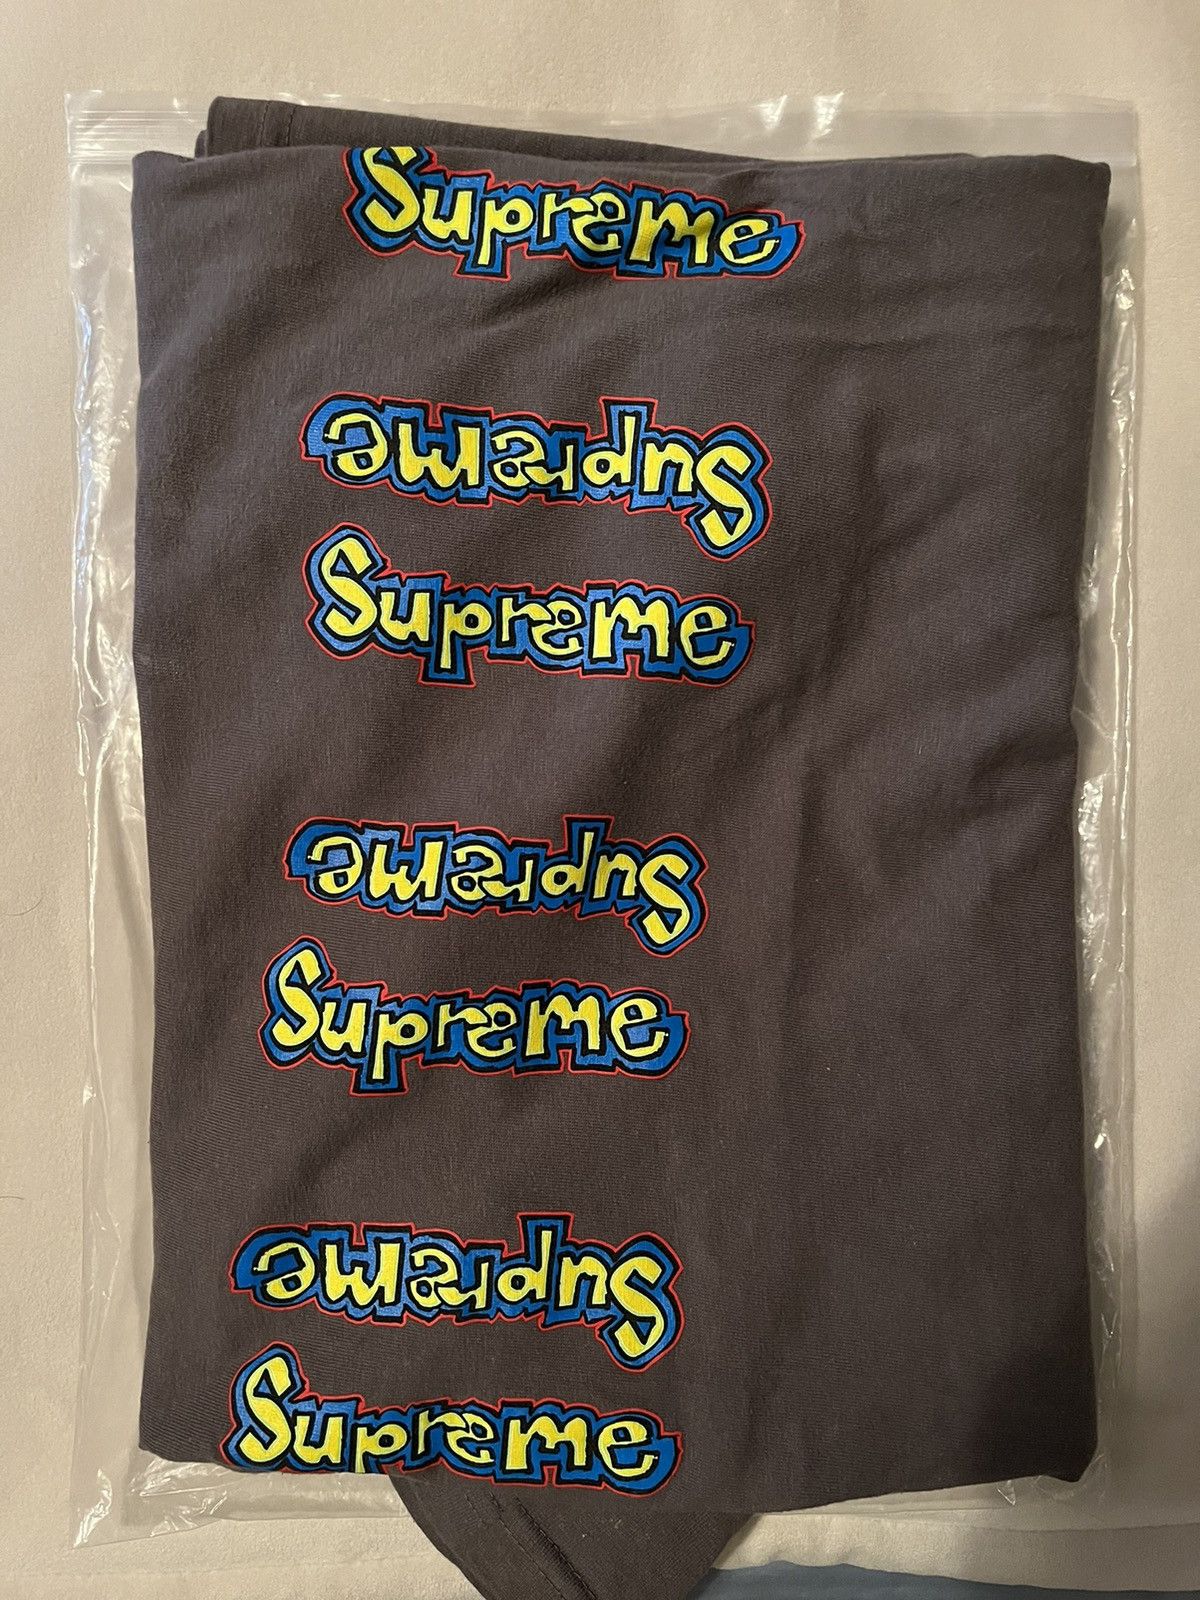 Supreme
Supreme
Supreme
Supreme
Supreme
Supreme
Supreme